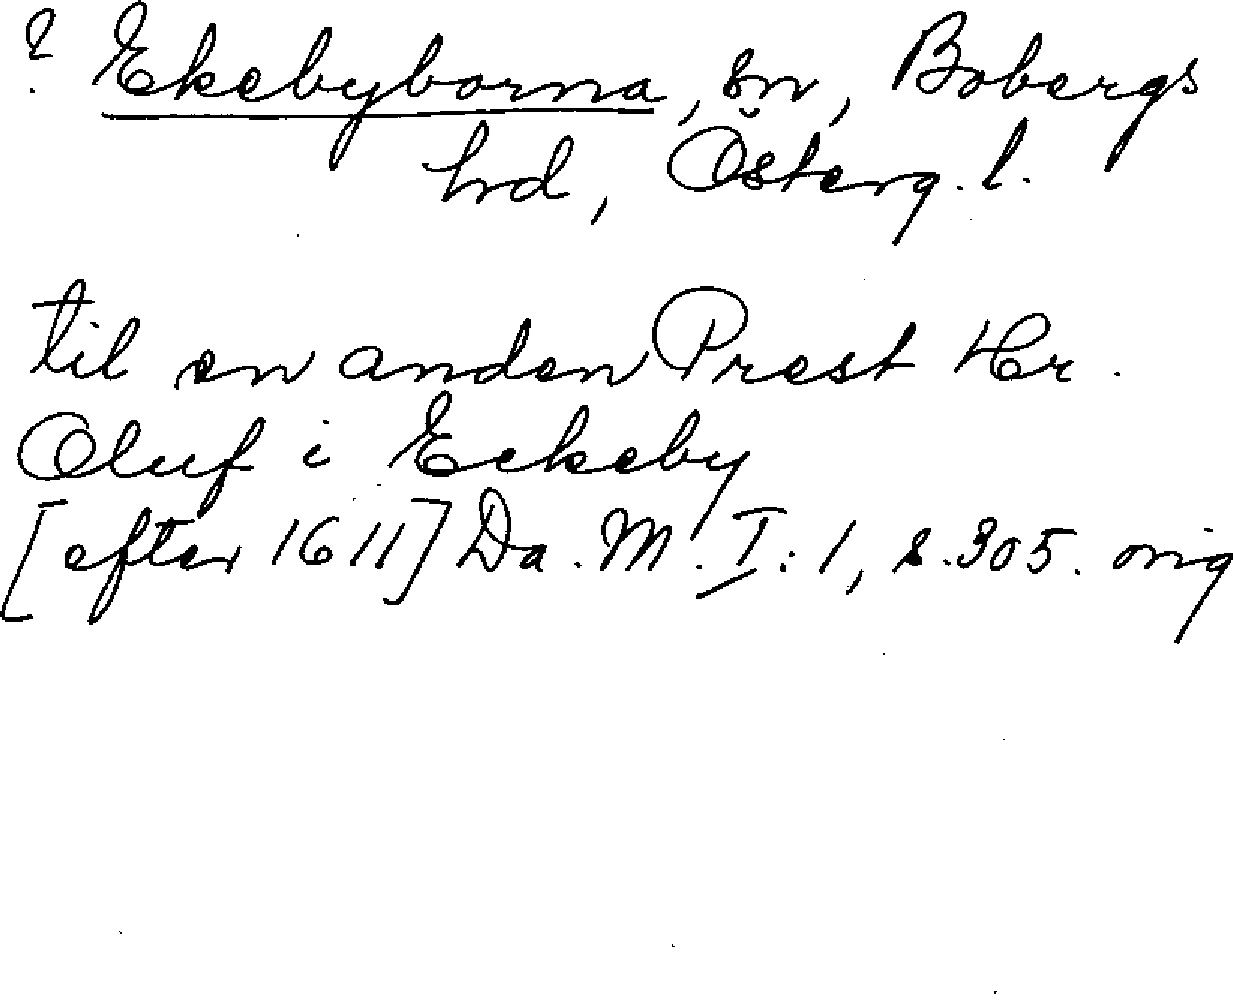 ? Ekebyborna, sn, Bobergs
hrd, Österg. l.
til en anden Prest Hr.
Oluf i Eckeby
[efter 1611] Da. M. I: 1, s. 305. orig